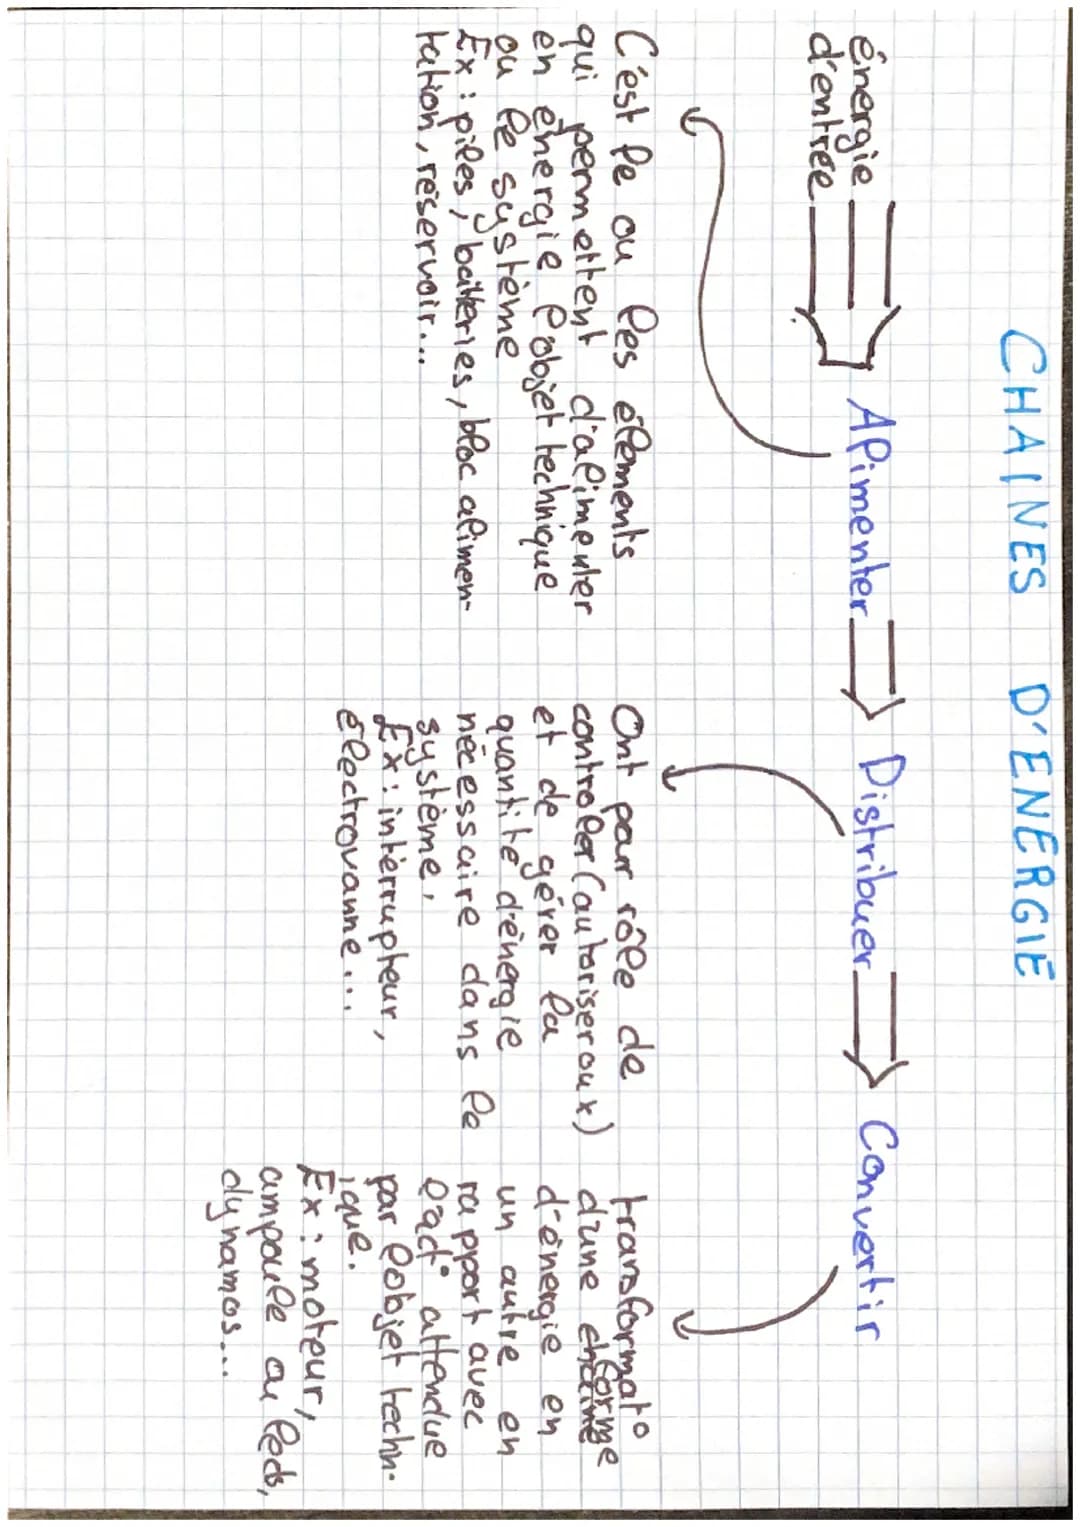 CHAINES D'ENERGIE
énergie
d'entrée
Alimenter
Distribuer
Convertir
C'est le ou les éléments
qui permettent d'alimenter
en énergie l'objet technique
ou le système
Ex : piles, batteries, bloc alimen-
tation, réservoir...
Ont par rôle de
controler (autoriser ou x)
et de gérer la
quantité d'énergie
nécessaire dans le
système.
Ex : intérrupteur,
électrovanne...
transformat°
d'une forme
d'énergie en
un autre en
rapport avec
l'act° attendue
par l'objet techn-
ique.
Ex : moteur,
ampoule ou leds,
dynamos...